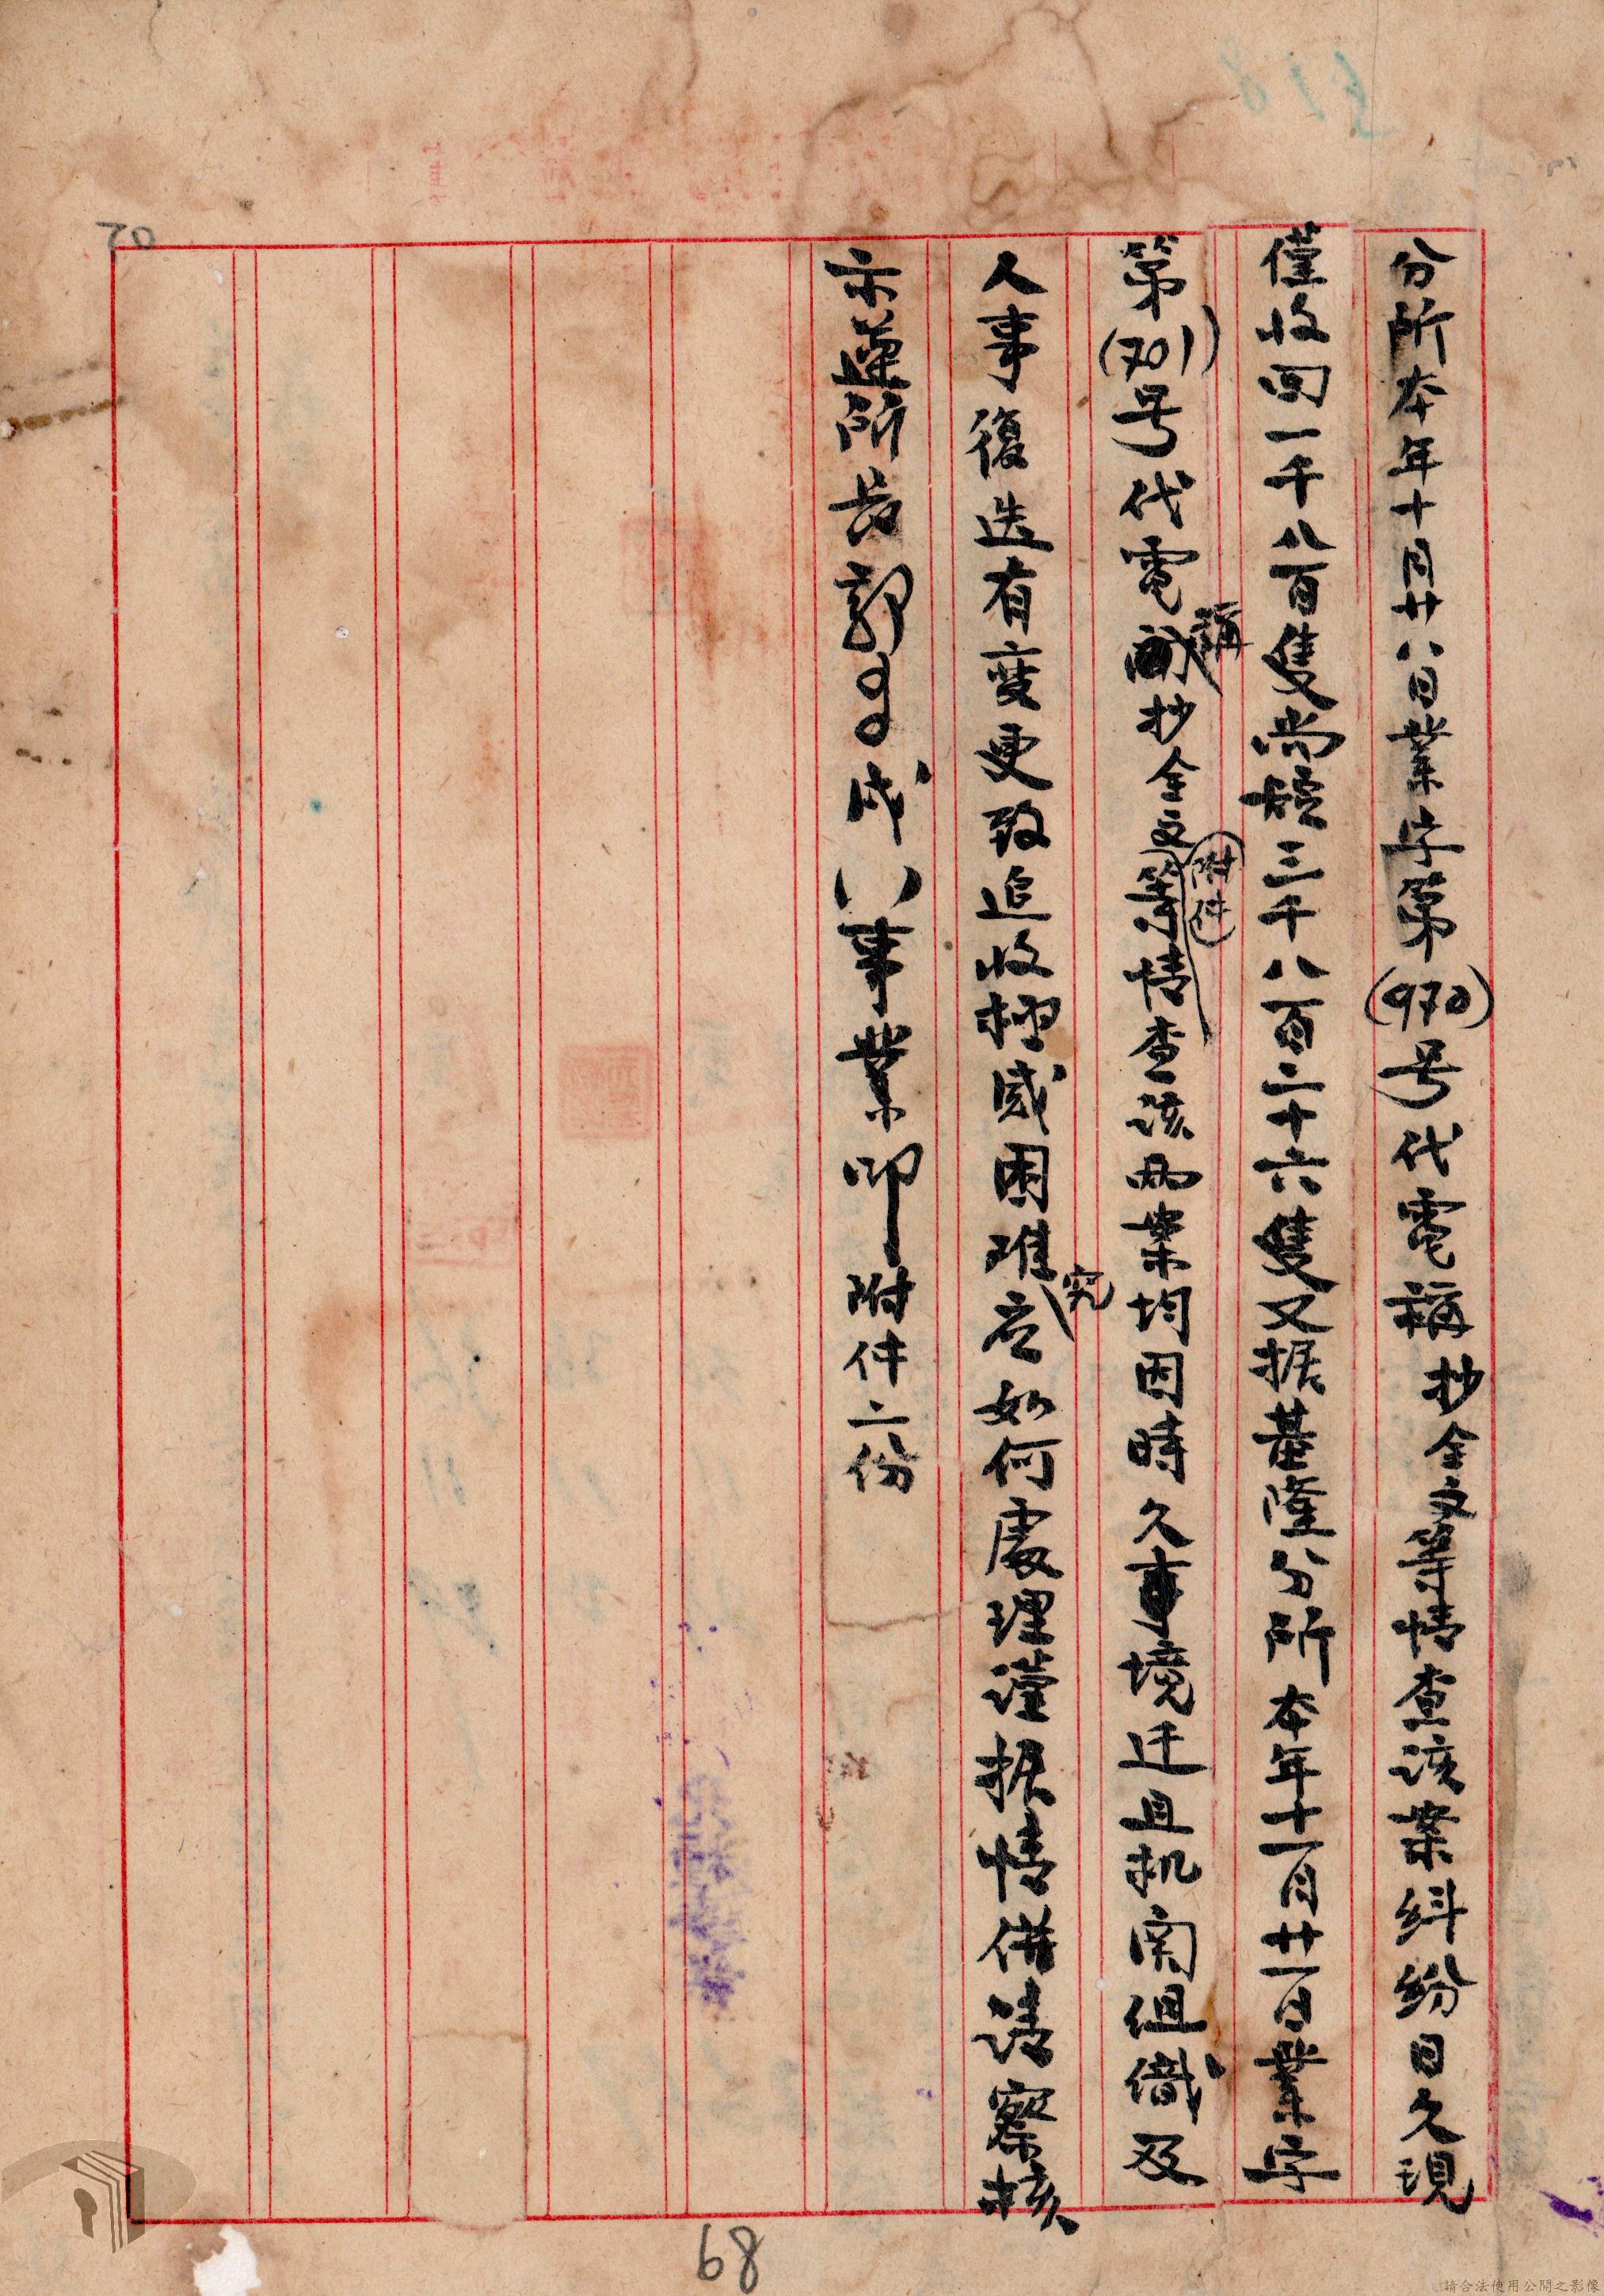 分所本年十月廿八日業字第(970)号代電稱抄全文等情查該案糾紛日久現
僅收回一千八百隻尚短三千八百二十六隻又据基隆分所本年十一月廿一日業字
第(701)号代電稱抄全文(附件)等情查該兩案均因時久事境迁且机関组織及
人事復迭有变更致追收極感困难究应如何處理謹据情併請察核
示遵所長郭
戌 事業叩附件二份
70
68
請合法使用公開之影像